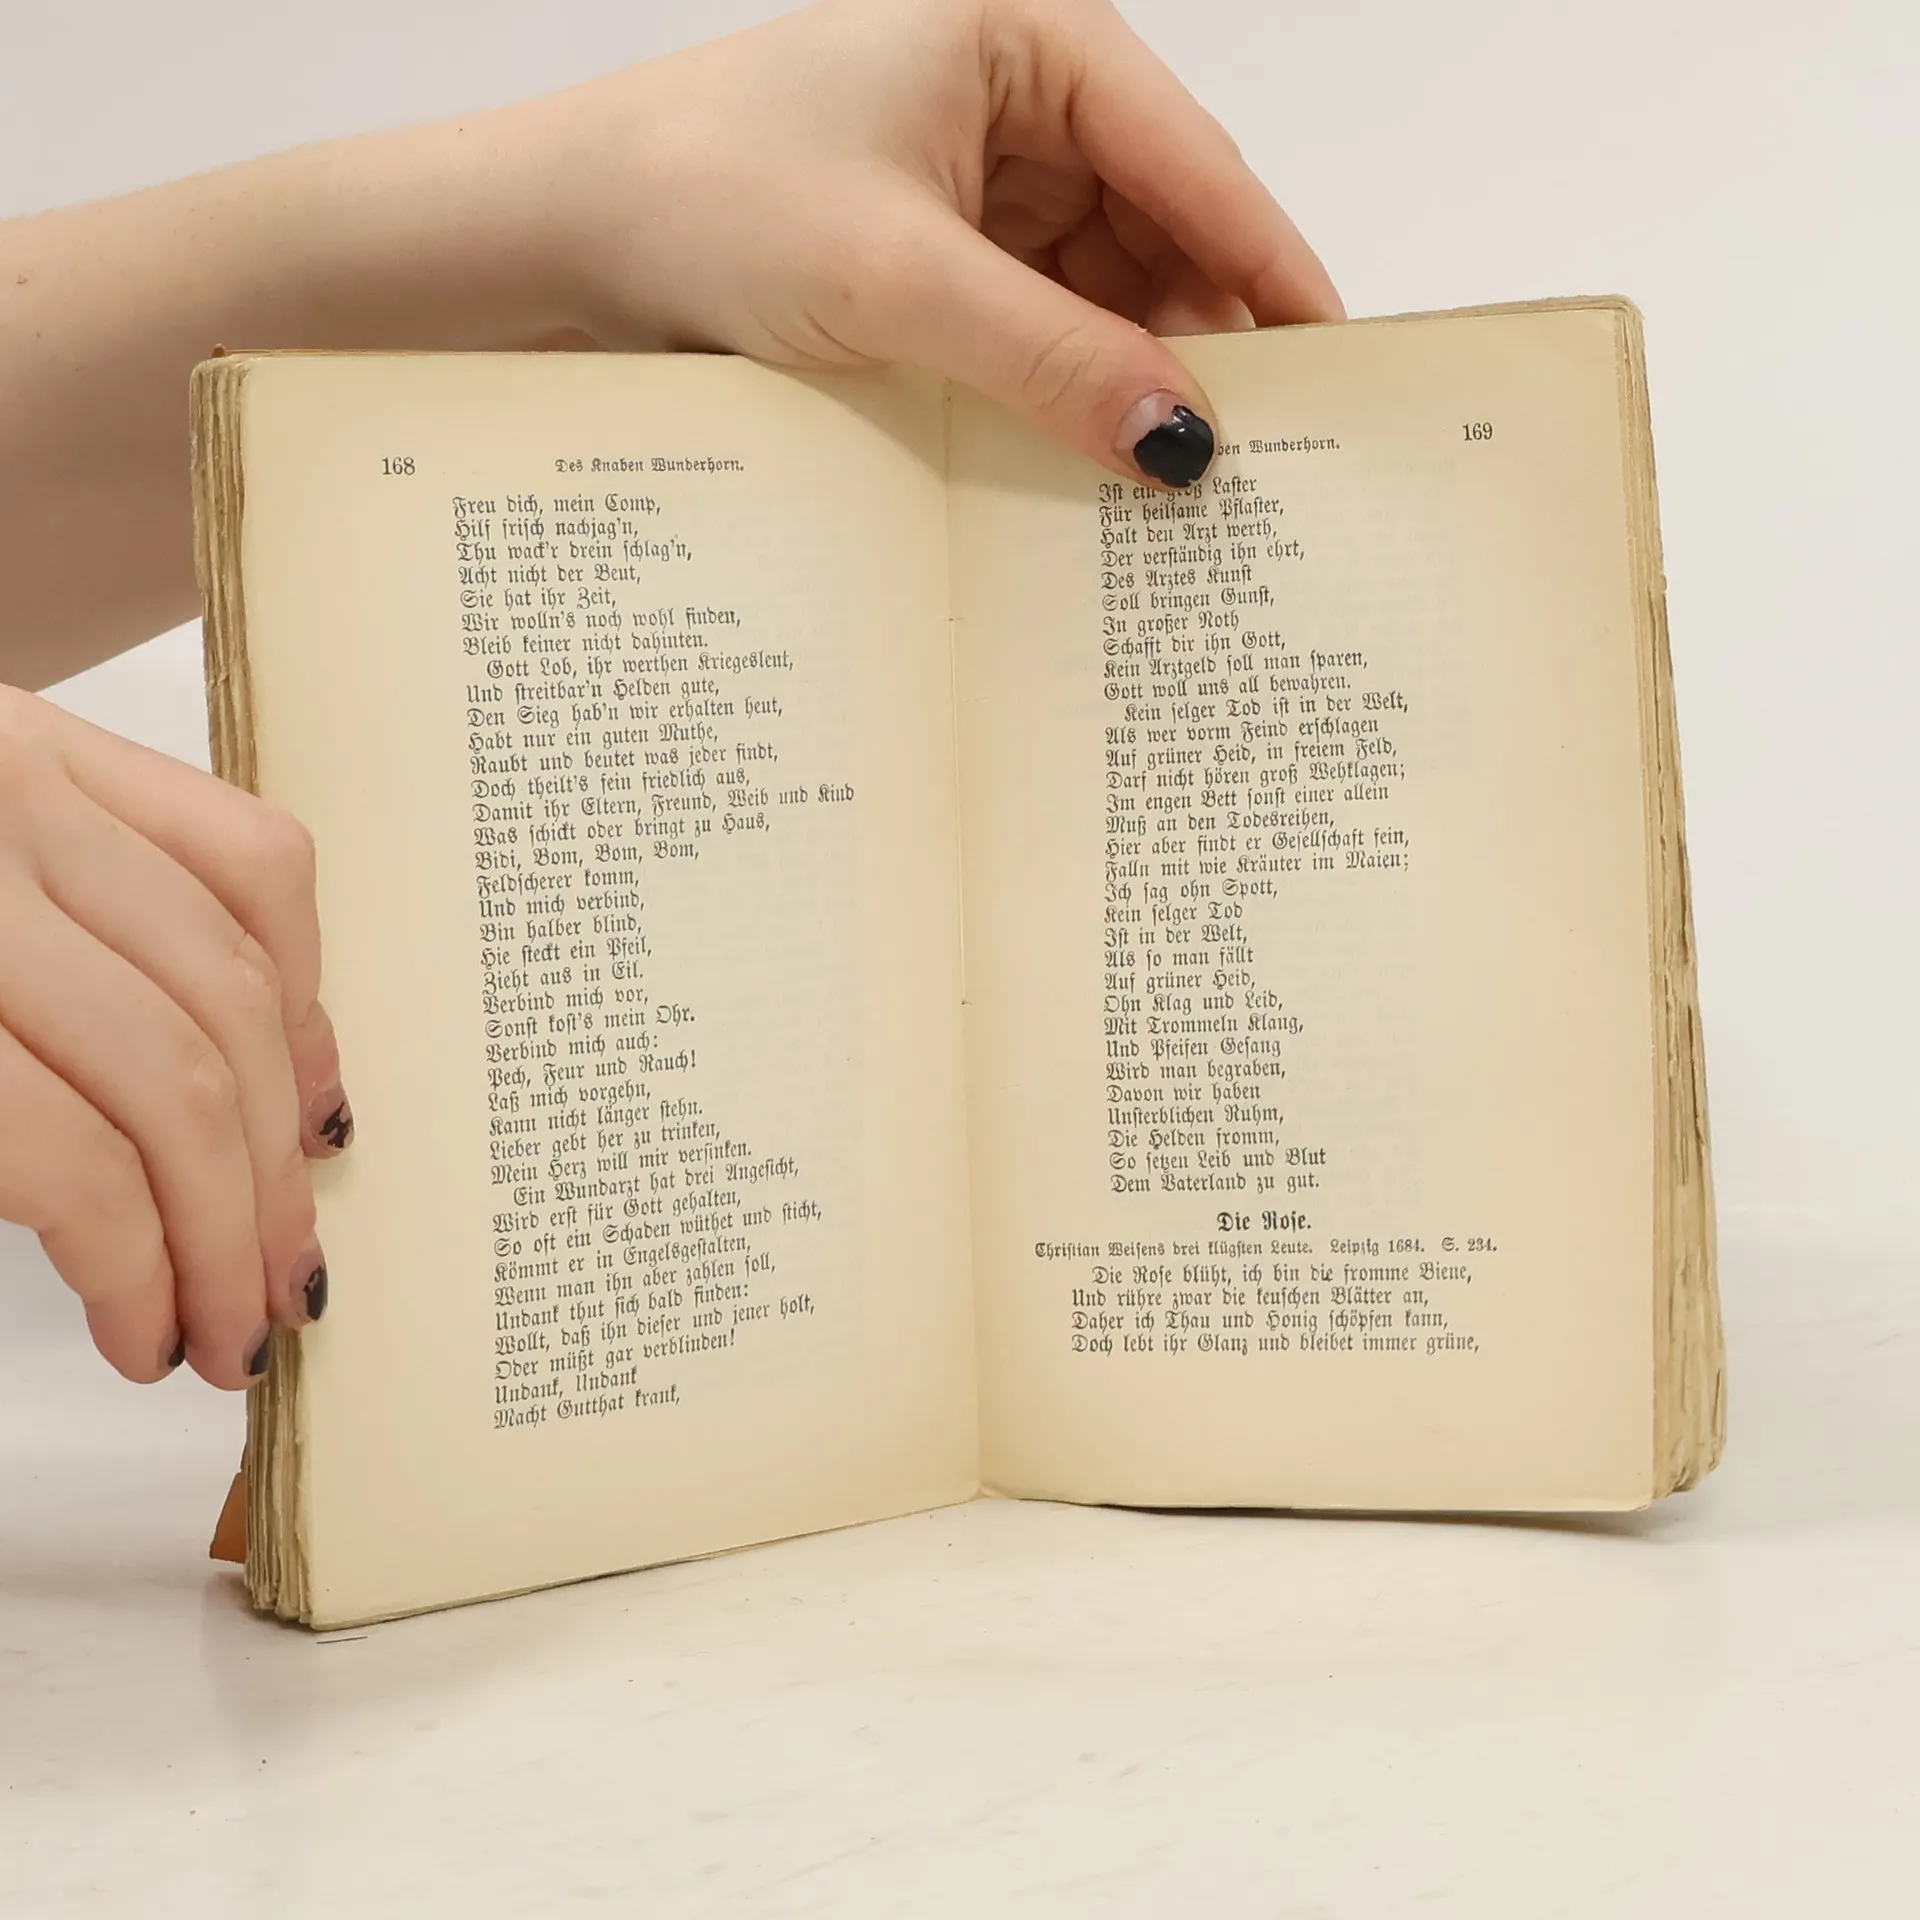 168
Des Knaben Wunderhorn.
Freu dich, mein Comp,
Hilf frisch nachjag'n,
Thu wack'r drein schlag'n,
Acht nicht der Beut,
Sie hat ihr Zeit,
Wir wolln's noch wohl finden,
Bleib keiner nicht dahinten.
Gott Lob, ihr werthen Kriegesleut,
Und streitbar'n Helden gute,
Den Sieg hab'n wir erhalten heut,
Habt nur ein guten Muthe,
Raubt und beutet was jeder findt,
Doch theilt's fein friedlich aus,
Damit ihr Eltern, Freund, Weib und Kind
Was schickt oder bringt zu Haus,
Bidi, Bom, Bom, Bom,
Feldscherer komm,
Und mich verbind,
Bin halber blind,
Hie steckt ein Pfeil,
Zieht aus in Eil.
Verbind mich vor,
Sonst kost's mein Ohr.
Verbind mich auch:
Pech, Feur und Rauch!
Laß mich vorgehn,
Kann nicht länger stehn.
Lieber gebt her zu trinken,
Mein Herz will mir versinken.
Ein Wundarzt hat drei Angesicht,
Wird erst für Gott gehalten,
So oft ein Schaden wüthet und sticht,
Kömmt er in Engelsgestalten,
Wenn man ihn aber zahlen soll,
Undank thut sich bald finden:
Wollt, daß ihn dieser und jener holt,
Oder müßt gar verblinden!
Undank, Undank
Macht Gutthat krank,
Wunderhorn.
169
Ist ein groß Laster
Für heilsame Pflaster,
Halt den Arzt werth,
Der verständig ihn ehrt,
Des Arztes Kunst
Soll bringen Gunst,
In großer Noth
Schafft dir ihn Gott,
Kein Arztgeld soll man sparen,
Gott woll uns all bewahren.
Kein selger Tod ist in der Welt,
Als wer vorm Feind erschlagen
Auf grüner Heid, in freiem Feld,
Darf nicht hören groß Wehklagen;
Im engen Bett sonst einer allein
Muß an den Todesreihen,
Hier aber findt er Gesellschaft fein,
Falln mit wie Kräuter im Maien;
Ich sag ohn Spott,
Kein selger Tod
Ist in der Welt,
Als so man fällt
Auf grüner Heid,
Ohn Klag und Leid,
Mit Trommeln Klang,
Und Pfeifen Gesang
Wird man begraben,
Davon wir haben
Unsterblichen Ruhm,
Die Helden fromm,
So setzen Leib und Blut
Dem Vaterland zu gut.
Die Rose.
Christian Weisens drei klügsten Leute. Leipzig 1684. S. 234.
Die Rose blüht, ich bin die fromme Biene,
Und rühre zwar die keuschen Blätter an,
Daher ich Thau und Honig schöpfen kann,
Doch lebt ihr Glanz und bleibet immer grüne,